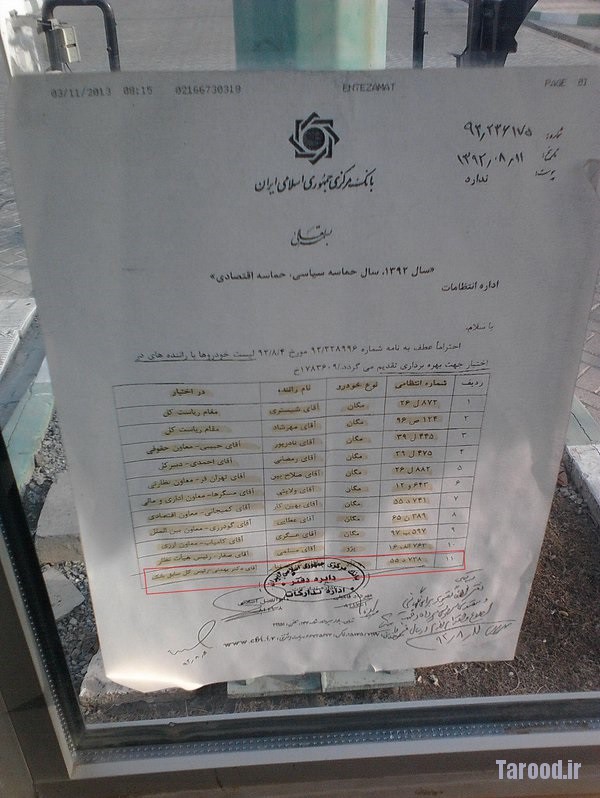 03/11/2013 08:15 02166730319 ENTEZAMAT PAGE 01
شماره: ۹۲٫۲۳۶۱۷۵
تاریخ: ۱۳۹۲٫۰۸٫۱۱
پیوست: ندارد
بانک مرکزی جمهوری اسلامی ایران
بسمه تعالی
«سال ۱۳۹۲، سال حماسه سیاسی، حماسه اقتصادی»
اداره انتظامات
با سلام،
احتراماً عطف به نامه شماره ۹۲/۲۲۸۹۹۶ مورخ ۹۲/۸/۴ لیست خودروها با راننده های در
اختیار جهت بهره برداری تقدیم می گردد./۱۷۸۳۶۰۹ح
ردیف شماره انتظامی نوع خودرو نام راننده در اختیار
۱ ۸۷۲ ل ۲۶ مگان آقای شبستری مقام ریاست کل
۲ ۱۲۴ ص ۹۶ مگان آقای مهرشاد مقام ریاست کل
۳ ۴۴۵ ل ۳۹ مگان آقای نادرپور آقای حسینی- معاون حقوقی
۴ ۴۷۵ ل ۲۹ مگان آقای رمضانی آقای احمدی- دبیرکل
۵ ۸۸۲ ل ۲۶ مگان آقای صلاح بین آقای تهران فر- معاون نظارتی
۶ ۶۴۳ و ۱۲ مگان آقای ولایتی آقای عسگرها- معاون اداری و مالی
۷ ۷۴۱ د ۵۵ مگان آقای بهین کار آقای کمیجانی- معاون اقتصادی
۸ ۳۸۹ ن ۶۵ مگان آقای عطایی آقای گودرزی- معاون بین الملل
۹ ۵۹۷ ب ۹۷ مگان آقای عسگری آقای کامیاب- معاون ارزی
۱۰ ۷۶۳ الف ۱۶ پژو آقای مسلمی آقای صفار- رئیس هیات نظار
۱۱ ۲۳۸ د ۵۵ آقای دکتر بهمنی- رئیس کل سابق بانک
بانک مرکزی جمهوری اسلامی ایران
دایره دفتر
اداره تدارکات
www.cbi.ir
۹۲٫۸٫۱۱
Tarood.ir